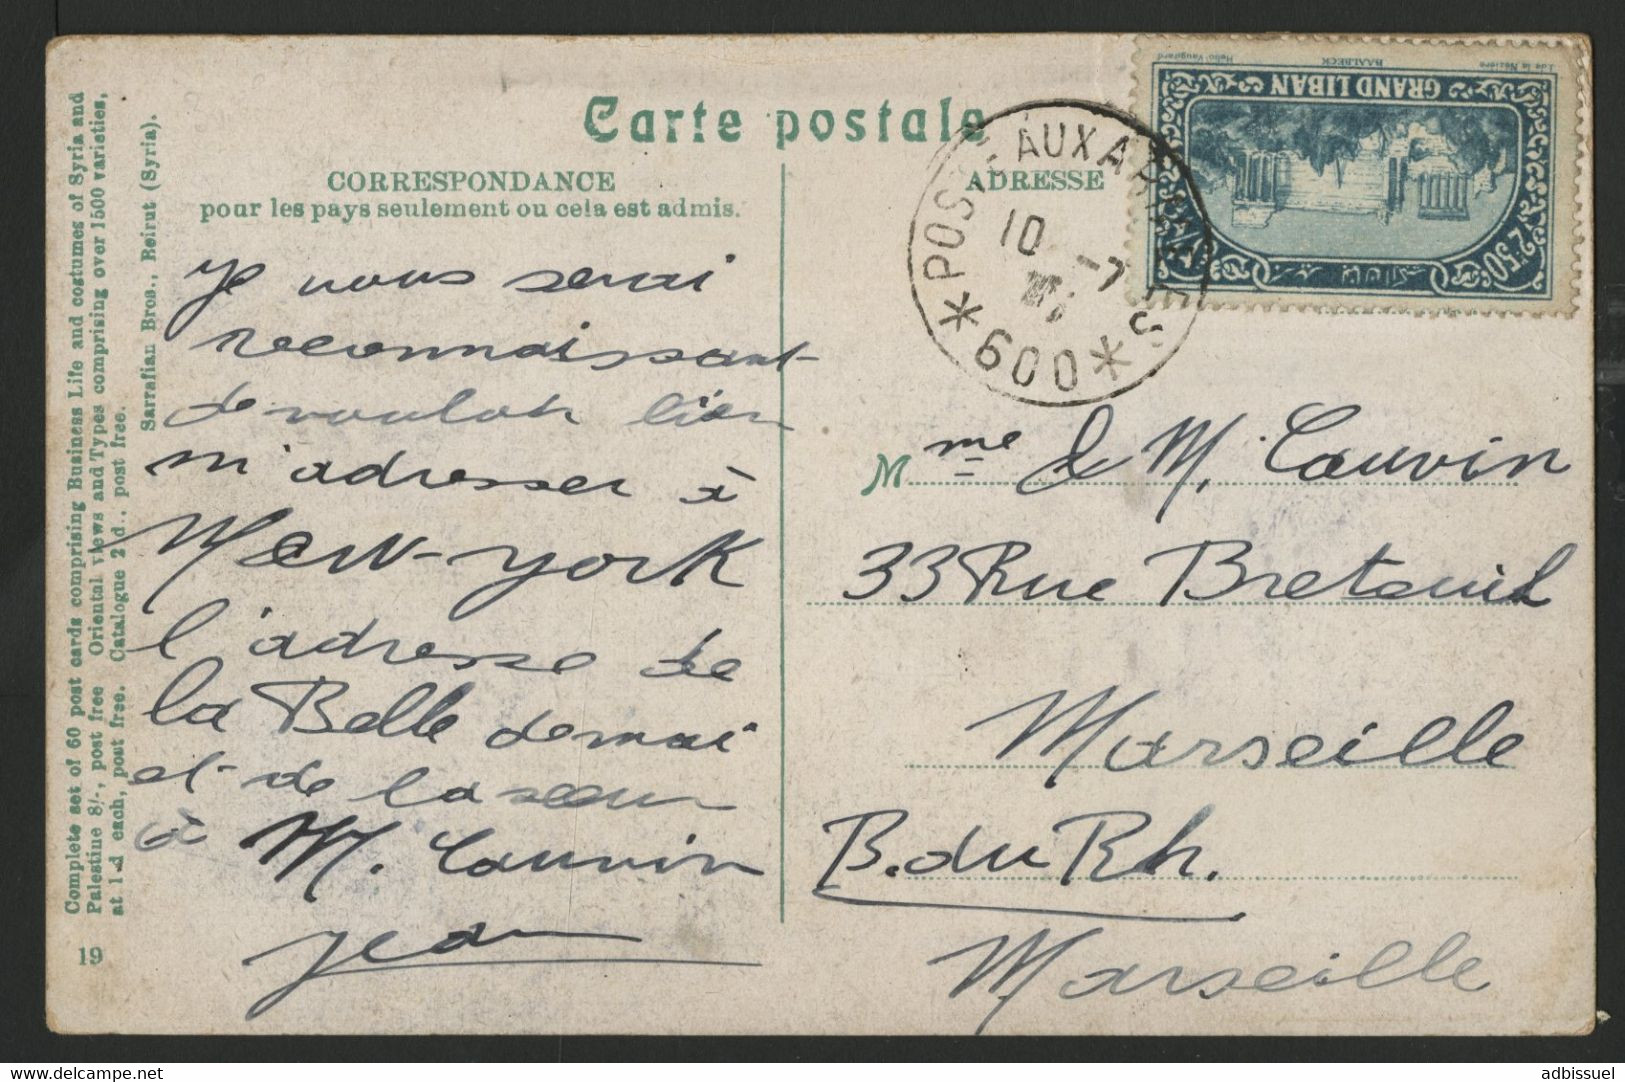 Carte postale
CORRESPONDANCE
pour les pays seulement ou cela est admis.
ADRESSE
Je vous serai
reconnaissant
de vouloir bien
m'adresser à
New-york
l'adresse de
la Belle
et de la sœur
à M. Cauvin
Jean
Mme & M. Cauvin
33 Rue Breteuil
Marseille
B. du Rh.
Marseille
POSTE AUX ARMEES
10 -7
*600*
J. de la Nézière BAALBECK Hélio Vaugirard
GRAND LIBAN
2P.50
Complete set of 60 post cards comprising Business Life and costumes of Syria and
Palestine 8/-, post free Oriental views and Types comprising over 1500 varieties,
at 1 d each, post free. Catalogue 2 d., post free.
Sarrafian Bros., Beirut (Syria).
19
adbissuel